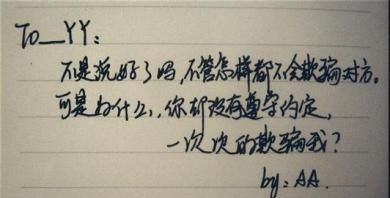 To__YY:
不是说好了吗,不管怎样都不会欺骗对方。
可是为什么,你却没有遵守约定,
一次次的欺骗我?
by:AA.